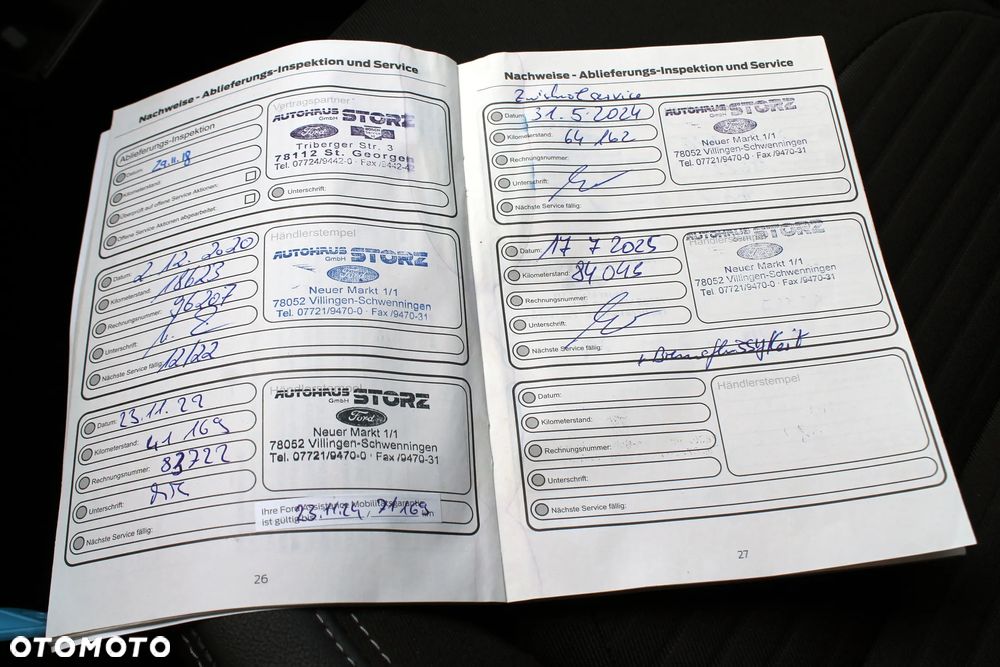 Nachweise - Ablieferungs-Inspektion und Service
Ablieferungs-Inspektion
Datum: 29.11.18
Kilometerstand:
Überprüft auf offene Service Aktionen:
Offene Service Aktionen abgearbeitet:
Vertragspartner:
AUTOHAUS STORZ
GmbH
Ford
Triberger Str. 3
78112 St. Georgen
Tel. 07724/9442-0 · Fax /9442-42
Unterschrift:
Datum: 2 12. 2020
Kilometerstand: 18623
Rechnungsnummer: 96207
Unterschrift:
Nächste Service fällig: 12/22
Händlerstempel
AUTOHAUS STORZ
GmbH
Ford
Neuer Markt 1/1
78052 Villingen-Schwenningen
Tel. 07721/9470-0 · Fax /9470-31
Datum: 23.11.22
Kilometerstand: 41 169
Rechnungsnummer: 83722
Unterschrift:
Nächste Service fällig:
Händlerstempel
AUTOHAUS STORZ
GmbH
Ford
Neuer Markt 1/1
78052 Villingen-Schwenningen
Tel. 07721/9470-0 · Fax /9470-31
Ihre Ford Assistance Mobilitätsgarantie
ist gültig 23.11.24 / 71169 km
26
Nachweise - Ablieferungs-Inspektion und Service
Datum: 31.5.2024
Kilometerstand: 64 162
Rechnungsnummer:
Unterschrift:
Nächste Service fällig:
AUTOHAUS STORZ
GmbH
Ford
Neuer Markt 1/1
78052 Villingen-Schwenningen
Tel. 07721/9470-0 · Fax /9470-31
Datum: 17 7 2025
Kilometerstand: 84 046
Rechnungsnummer:
Unterschrift:
Nächste Service fällig:
+ Bremsflüssigkeit
Händlerstempel
AUTOHAUS STORZ
GmbH
Ford
Neuer Markt 1/1
78052 Villingen-Schwenningen
Tel. 07721/9470-0 · Fax /9470-31
Datum:
Kilometerstand:
Rechnungsnummer:
Unterschrift:
Nächste Service fällig:
Händlerstempel
27
OTOMOTO